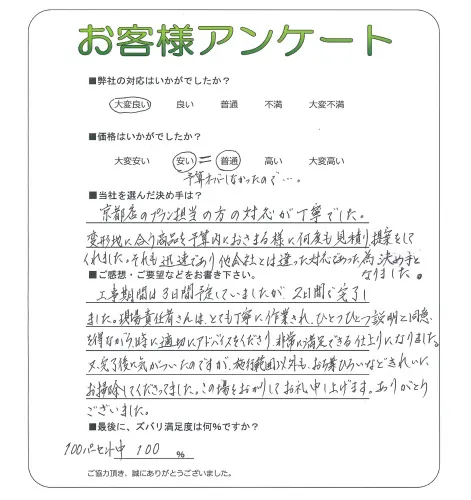 お客様アンケート
■弊社の対応はいかがでしたか？
大変良い 良い 普通 不満 大変不満
■価格はいかがでしたか？
大変安い 安い = 普通 高い 大変高い
予算オーバーしなかったので…。
■当社を選んだ決め手は？
京都店のプラン担当の方の対応が丁寧でした。
変形地に合う商品を予算内におさまる様に何度も見積り提案をして
くれました。それも迅速であり他会社とは違った対応であった為決め手と
なりました。
■ご感想・ご要望などをお書き下さい。
工事期間は3日間予定していましたが、2日間で完了し
ました。現場責任者さんは、とても丁寧に作業され、ひとつひとつ説明と同意
を得ながら時に適切にアドバイスをくださり、非常に満足できる仕上りになりました。
又、完了後に気がついたのですが、施行範囲以外も、お落ひろいなどきれいに
お掃除してくださってました。この場をおかりしてお礼申し上げます。ありがとう
ございました。
■最後に、ズバリ満足度は何%ですか？
100パーセント中 100 %
ご協力頂き、誠にありがとうございました。